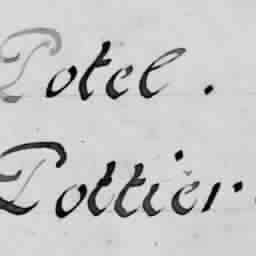 Potel.
Pottier